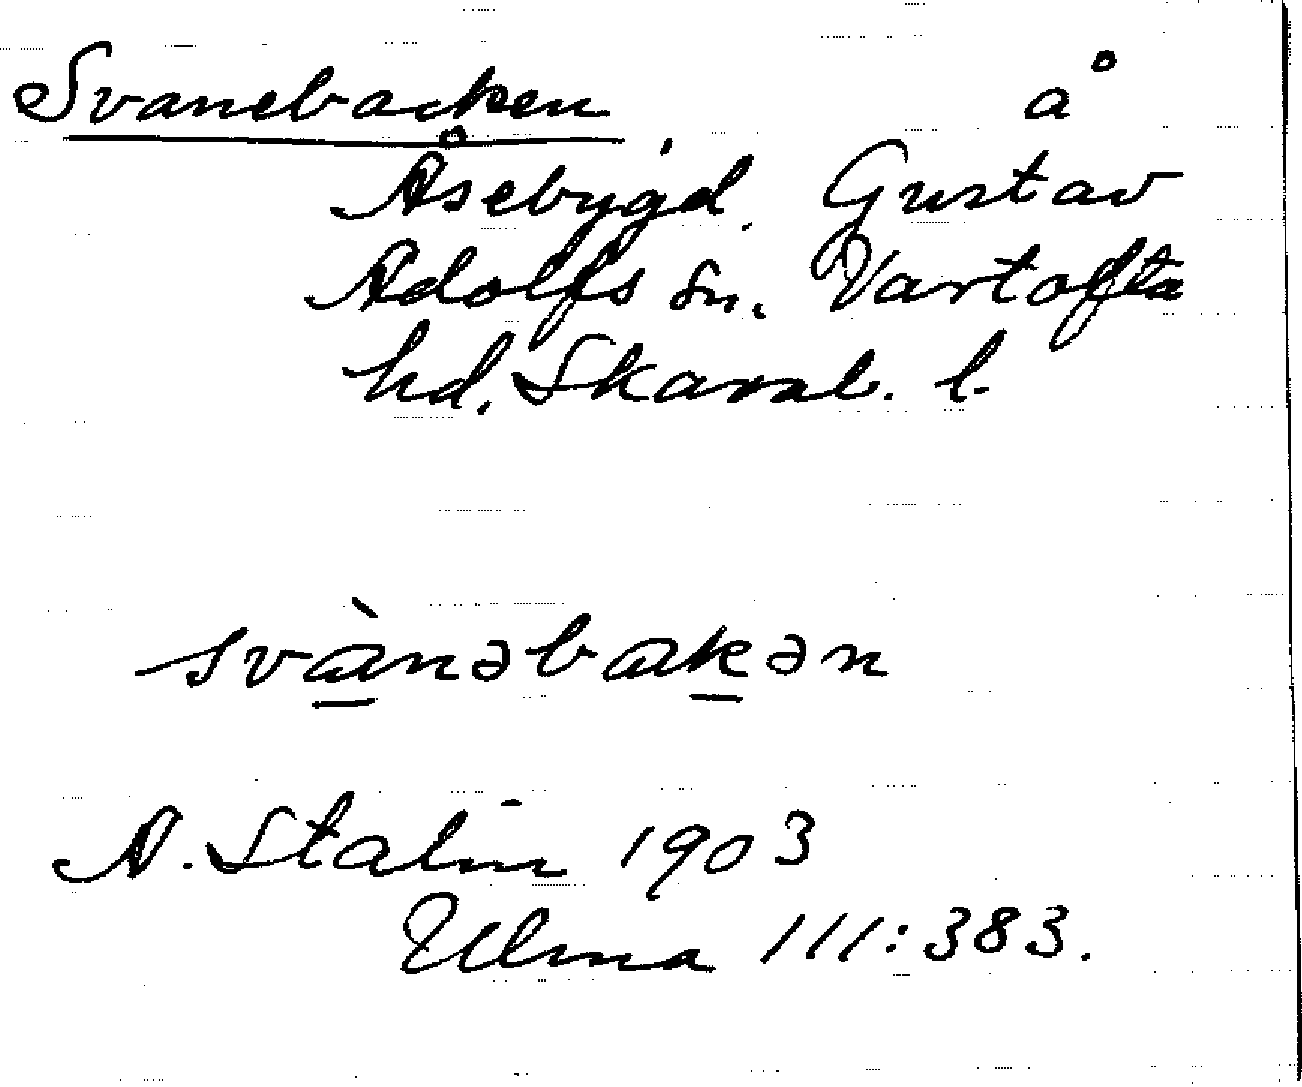 Svanebacken å
Åsebygd. Gustav
Adolfs sn. Vartofta
hd. Skarab. l.
svànəbakən
A. Stalin 1903
Ulma 111:383.